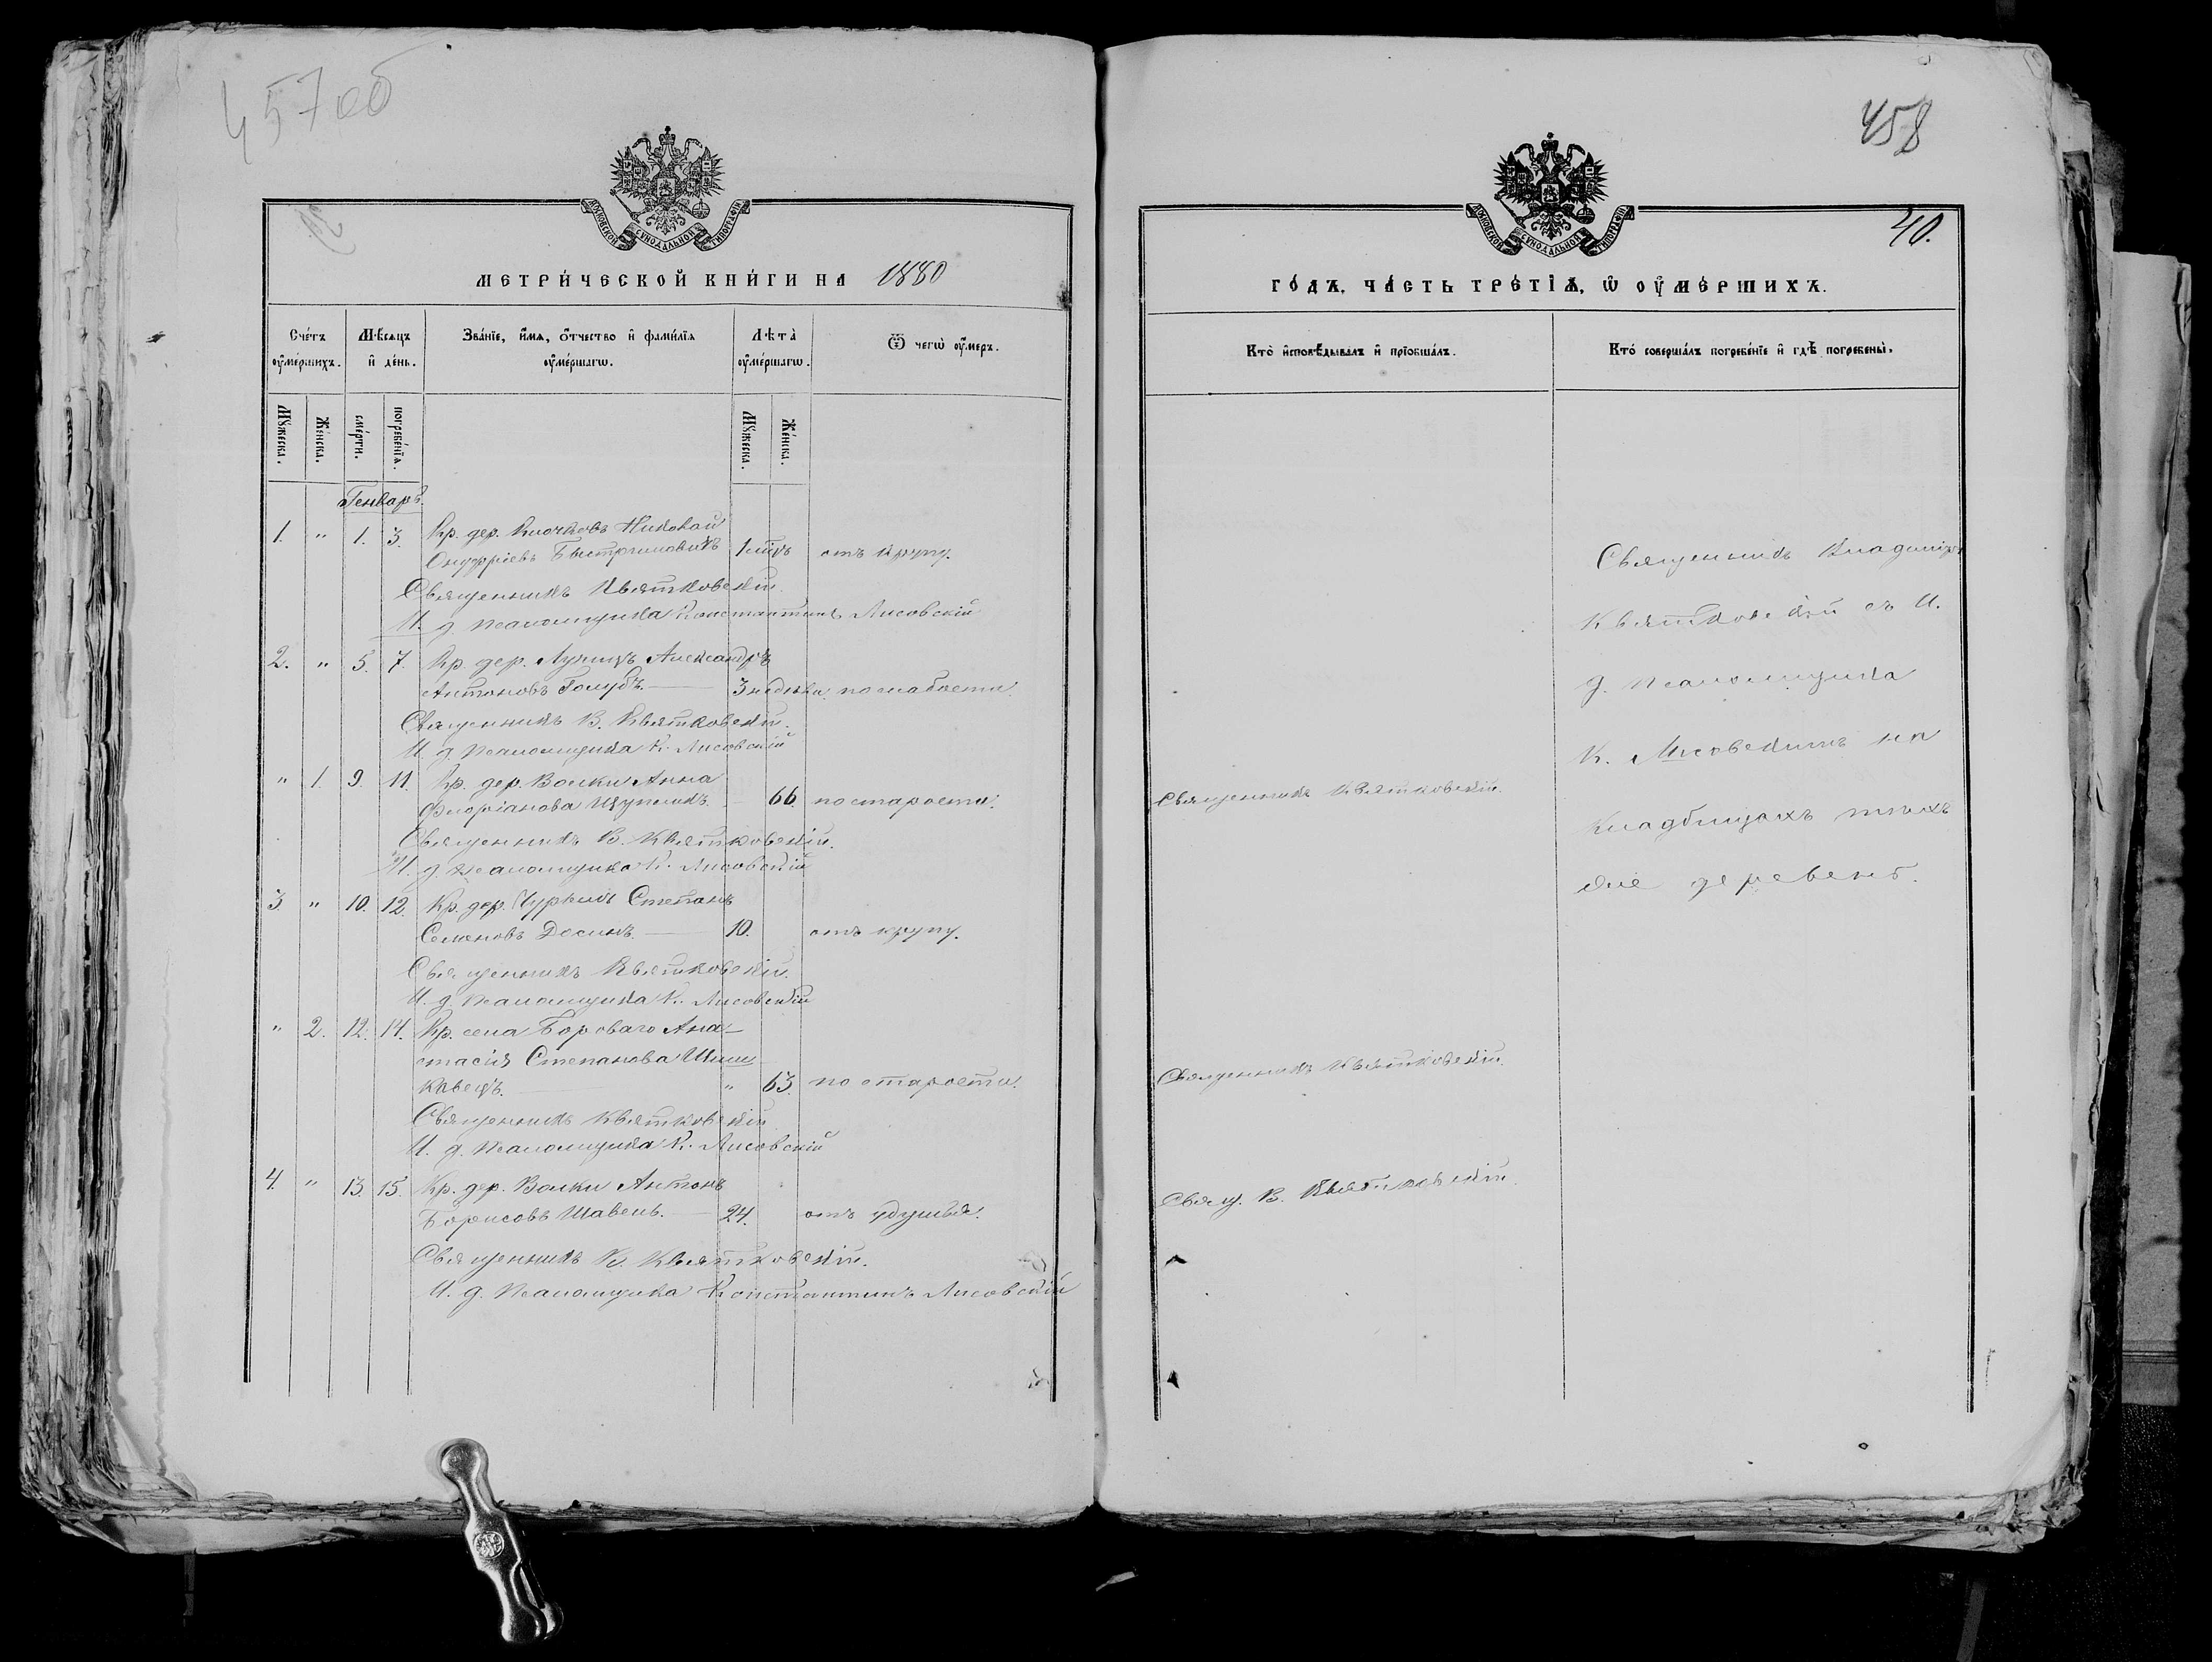 457об
МОСКОВСКОЙ СѴНОДАЛЬНОЙ ТИПОГРАФІИ
МЕТРИ́ЧЕСКОЙ КНИ́ГИ НА 1880
Сче́тъ ᲂу҆ме́ршихъ.
Мѣ́сѧцъ и҆ де́нь.
Зва́нїе, и҆́мѧ, ѻ҆́тчество и҆ фами́лїѧ ᲂу҆ме́ршагѡ.
Лѣ́та ᲂу҆ме́ршагѡ.
Ѿ чегѡ̀ ᲂу҆́меръ.
Мꙋ́жеска.
Же́нска.
сме́рти.
погребе́нїѧ.
Мꙋ́жеска.
Же́нска.
Генварь.
1. " 1. 3. Кр. дер. Клочковъ Николай
Онуфріевъ 1 отъ крупу.
Священникъ Квятковскій
И. д. псаломщика Константинъ Лисовскій
2. " 5. 7. Кр. дер. Александръ
Антоновъ Голубъ. — 3 недѣли по слабости.
Священникъ В. Квятковскій.
И. д. псаломщика К. Лисовскій
" 1. 9. 11. Кр. дер. Волки Анна
Флоріанова — 66. по старости.
Священникъ В. Квятковскій.
И. д. псаломщика К. Лисовскій
3. " 10. 12. Кр. дер. Степанъ
Семеновъ — 10. отъ крупу.
Священникъ Квятковскій.
И. д. псаломщика К. Лисовскій
" 2. 12. 14. Кр. села Бороваго Ана-
стасія Степанова Шиш
кавецъ. " 63. по старости.
Священникъ Квятковскій
И. д. псаломщика К. Лисовскій
4. " 13. 15. Кр. дер. Волки Антонъ
Борисовъ Шавень. — 24. отъ удушья.
Священникъ В. Квятковскій.
И. д. псаломщика Константинъ Лисовскій
458
МОСКОВСКОЙ СѴНОДАЛЬНОЙ ТИПОГРАФІИ
40.
ГО́ДЪ, ЧА́СТЬ ТРЕ́ТЇѦ, Ѡ҆ ОУ҆МЕ́РШИХЪ.
Кто̀ и҆сповѣ́дывалъ и҆ прїобща́лъ.
Кто́ соверша́лъ погребе́нїе и҆ гдѣ̀ погребены̀.
Священникъ Квятковскій.
Священникъ Квятковскій.
Свящ. В. Квятковскій.
Священникъ Владиміръ
Квятковскій съ И.
д. псаломщика
К. Лисовскимъ на
кладбищахъ тѣхъ
же деревень.